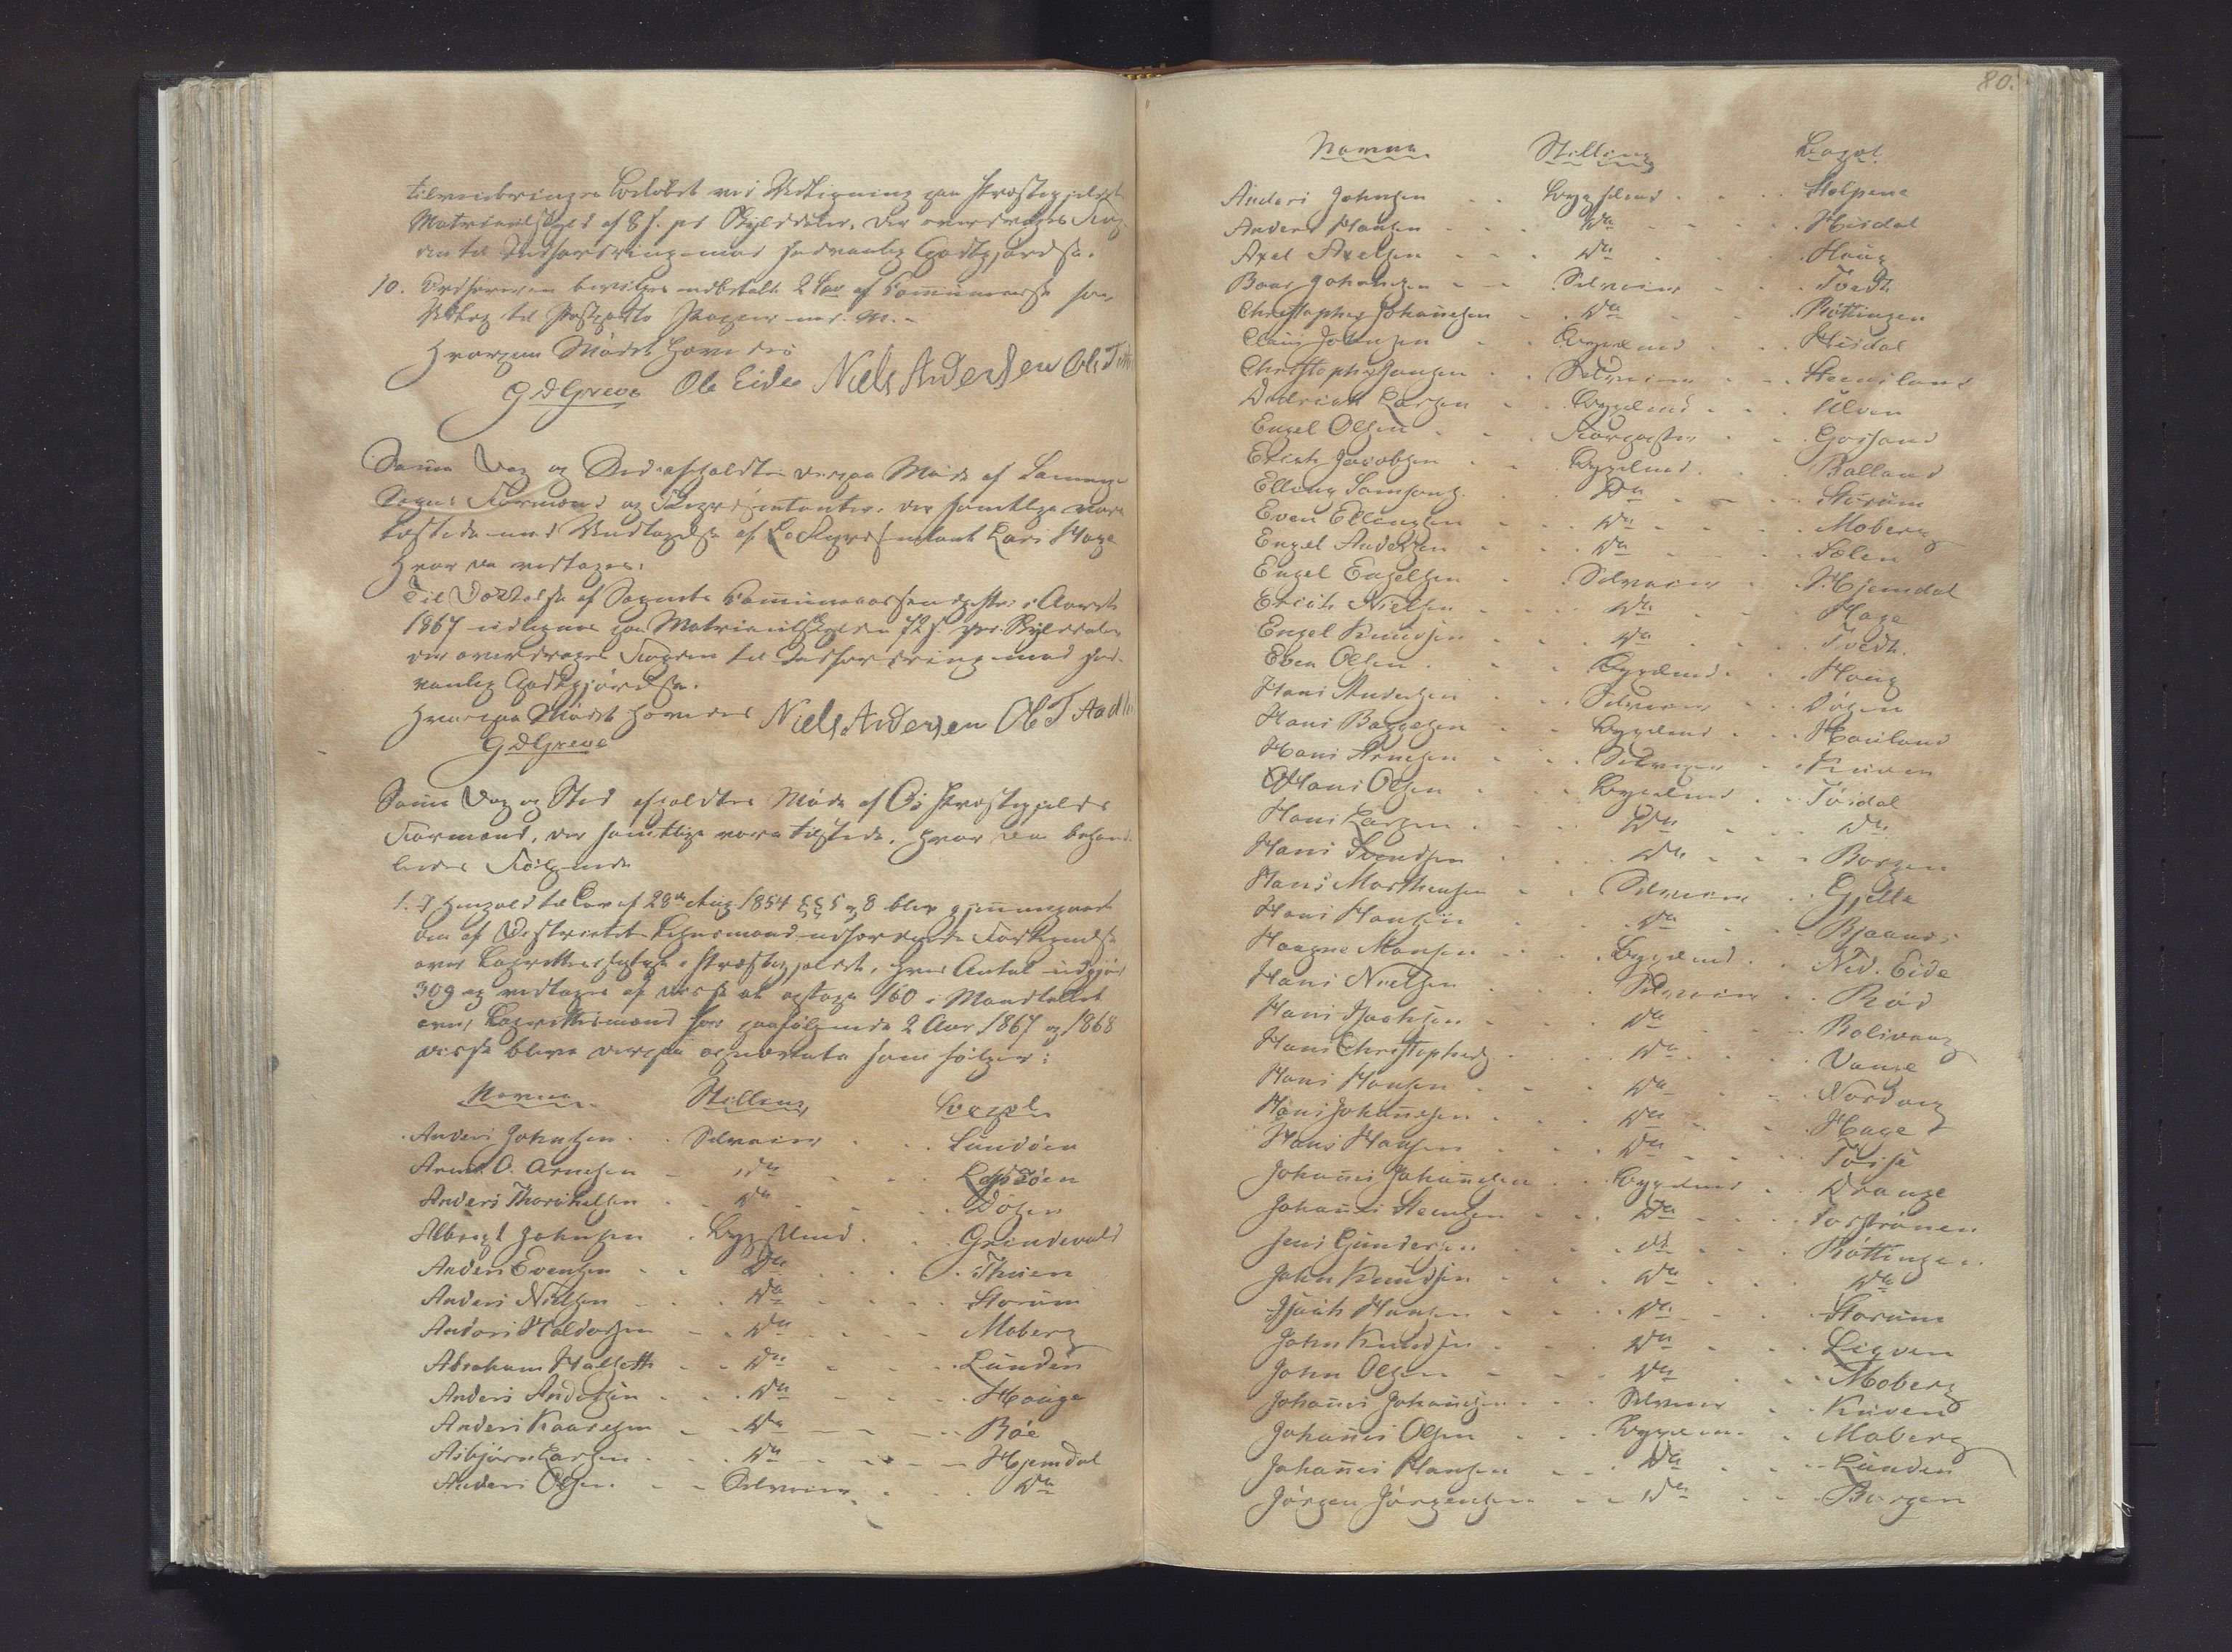 tilveiebringes Beløbet ved Udligning paa Præstegjeldets
Matrikulskyld af 8 s. pr Skylddaler, der overdrages Fog-
den til Indfordring mod sædvanlig Godtgjørelse.
10. Ordføreren bevilges udbetalt 2 Spd af Communecassen som
Udlæg til Postporto Papir m. m. -
Hvorpaa Mødet hævedes
G D Greve Ole Eide Niels Andersen Ole T
Samme Dag og Sted afholdtes derpaa Møde af
Sogns Formænd og Repræsentanter, der samtlige vare
tilstede med Undtagelse af Repræsentant Lars Hage
hvor da vedtages:
Til Dækkelse af Sognets Communecasseudgifter i Aaret
1867 udlignes paa Matrikulskylden 72 s. pr. Skylddaler
der overdrages Fogden til Indfordring mod sæd-
vanlig Godtgjørelse.
Hvorpaa Mødet hævedes Niels Andersen Ole T Aadl
G D Greve
Samme Dag og Sted afholdtes Møde af Os Præstegjelds
Formænd, der samtlige vare tilstede, hvor da behand-
ledes Følgende
1. I Henhold til Lov af 28de Aug 1854 §§ 5 og 8 blev gjennemgaaet
den af Districtets Lehnsmand udfærdigede Fortegnelse
over Lagrettes i Præstegjeldet, hvis Antal udgjør
309 og vedtages af disse at optage 160 i Mandtallet
over Lagrettesmænd for paafølgende 2 Aar 1867 og 1868
disse bleve derpaa som følger:
Navne Stilling Bopæl
Anders Johnsen Selveier Lundøen
Arne O. Arnesen Do
Anders Thorkelsen Do Døsen
Albregt Johnsen Bygselmd Grindevold
Anders Evensen Do Thuen
Anders Nielsen Do Storum
Anders Haldorsen Do Moberg
Abraham Do Lunden
Anders Andersen Do Hauge
Anders Kaaresen Do Røe
Asbjørn Larsen Do Hjemdal
Anders Olsen Selveier Do
80.
Navne Stilling Bopæl
Anders Johnsen Bygselmd Holpene
Anders Hansen Do Hisdal
Axel Axelsen Do Haug
Baar Johansen Selveier Tvedt
Christopher Johannesen Do Røttingen
Claus Johnsen Bygselmd Hisdal
Christopher Hansen Selveier
Didrick Larsen Bygselmd Ulven
Engel Olsen
Erick Jacobsen Bygselmd
Elling Samsons. Do Storum
Even Ellingsen Do Moberg
Engel Andersen Do Sælen
Engel Engelsen Selveier Hjemdal
Erick Nielsen Do Hage
Engel Knudsen Do Tvedt.
Even Olsen Bygselmd Haug
Hans Andersen Selveier Døsen
Hans Baggesen Bygselmd Hauland
Hans Arnesen Selveier Kuven
Hans Olsen Bygselmd Tøsdal
Hans Larsen Do Do
Hans Svendsen Do Borgen
Hans Mathiesen Selveier Gjelle
Hans Hansen Do Bjaanes
Haagne Monsen Bygselmd Ned. Eide
Hans Nielsen Selveier Rød
Hans Isaksen Do Bolivaag
Hans Christophers. Do Vange
Hans Hansen Do Nordvig
Hans Johannesen Do Hage
Hans Hansen Do Tøsse
Johannes Johannesen Bygselmd Drange
Johannes Steensen Do
Jens Gundersen Do Røttingen
John Knudsen Do Do
Isaak Hansen Do Storum
John Knudsen Do Ligven
John Olsen Do Moberg
Johannes Johannesen Selveier Kuven
Johannes Olsen Bygselmd Moberg
Johannes Hansen Do Lunden
Jørgen Jørgensen Do Borgen